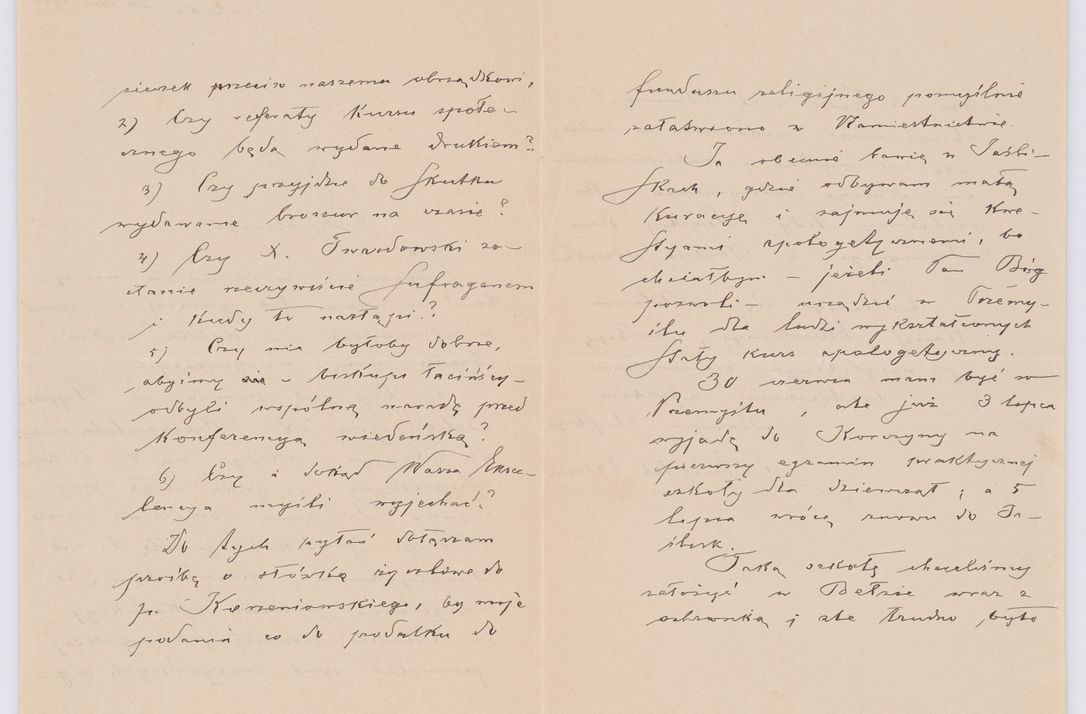 przeciw naszemu obrządkowi,
2) Czy referaty Kursu społe-
cznego będą wydane drukiem?
3) Czy przyjdzie do skutku
wydawanie broszur na czasie?
4) Czy X. Twardowski zo-
stanie rzeczywiście Sufraganem
i kiedy to nastąpi?
5) Czy nie byłoby dobrze,
abyśmy - biskupi łacińscy -
odbyli wspólną naradę przed
Konferencyą wiedeńską?
6) Czy i dokąd Wasza Eksce-
lencya myśli wyjechać?
Do tych pytań dołączam
prośbę o słówko życzliwe do
p. Korzeniowskiego, by moje
podania co do podatku do
funduszu religijnego pomyślnie
załatwiono w Namiestnictwie.
Ja obecnie bawię w Jaśli-
skach, gdzie odbywam małą
kuracyę i zajmuję się kwe-
styami apologetycznemi, bo
chciałbym - jeżeli Pan Bóg
pozwoli - urządzić w Przemy-
ślu dla ludzi wykształconych
stały kurs apologetyczny.
30 czerwca mam być w
Przemyślu, ale już 3 lipca
wyjadę do Korczyny na
pierwszy egzamin praktycznej
szkoły dla dziewcząt; a 5
lipca wrócę znowu do Ja-
ślisk.
Taką szkołę chcieliśmy
założyć w Bełzie wraz z
ochronką; ale trudno było